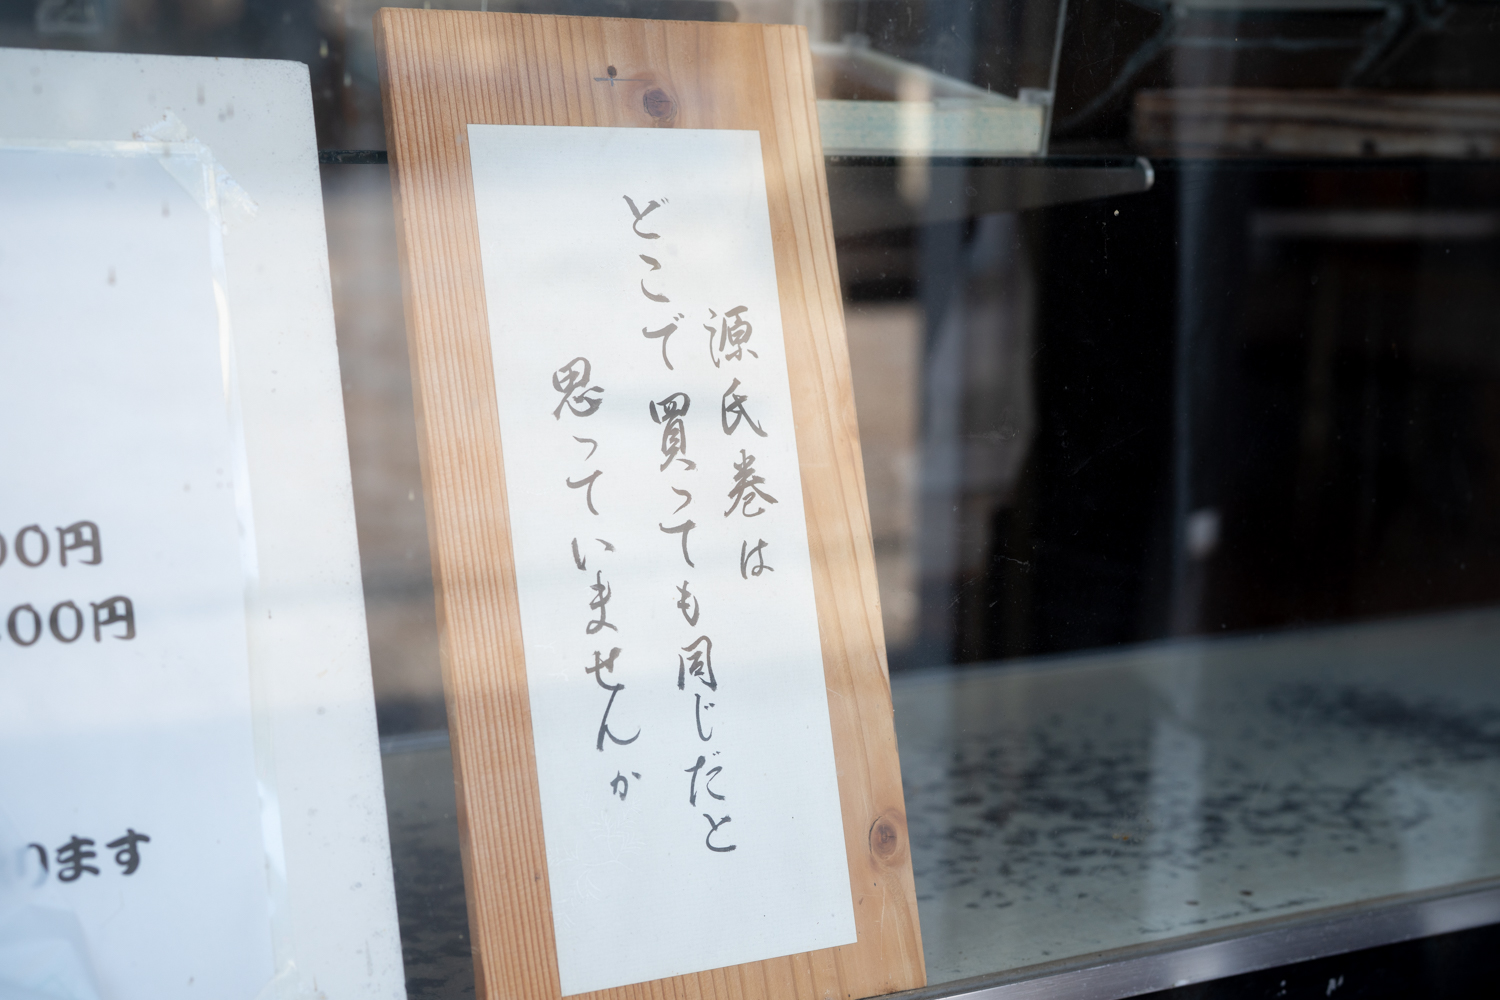 源氏巻は
どこで買っても同じだと
思っていませんか
00円
00円
ります